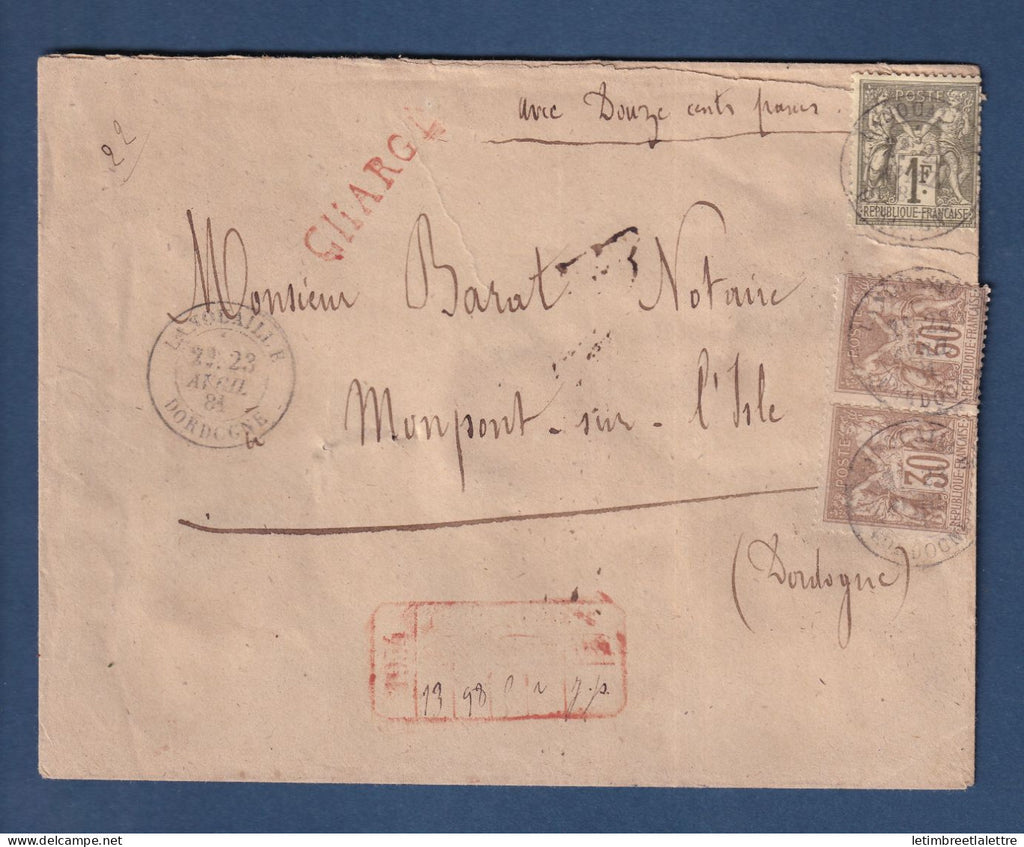 22
CHARGÉ
avec Douze cents francs.
POSTE
1F.
REPUBLIQUE FRANÇAISE
Monsieur Barat Notaire
23
AVRIL
81
DORDOGNE
Monpont-sur-l'Isle
POSTE
30
REPUBLIQUE FRANÇAISE
POSTE
30
REPUBLIQUE FRANÇAISE
DORDOGNE
(Dordogne)
13 98
letimbreetlalettre